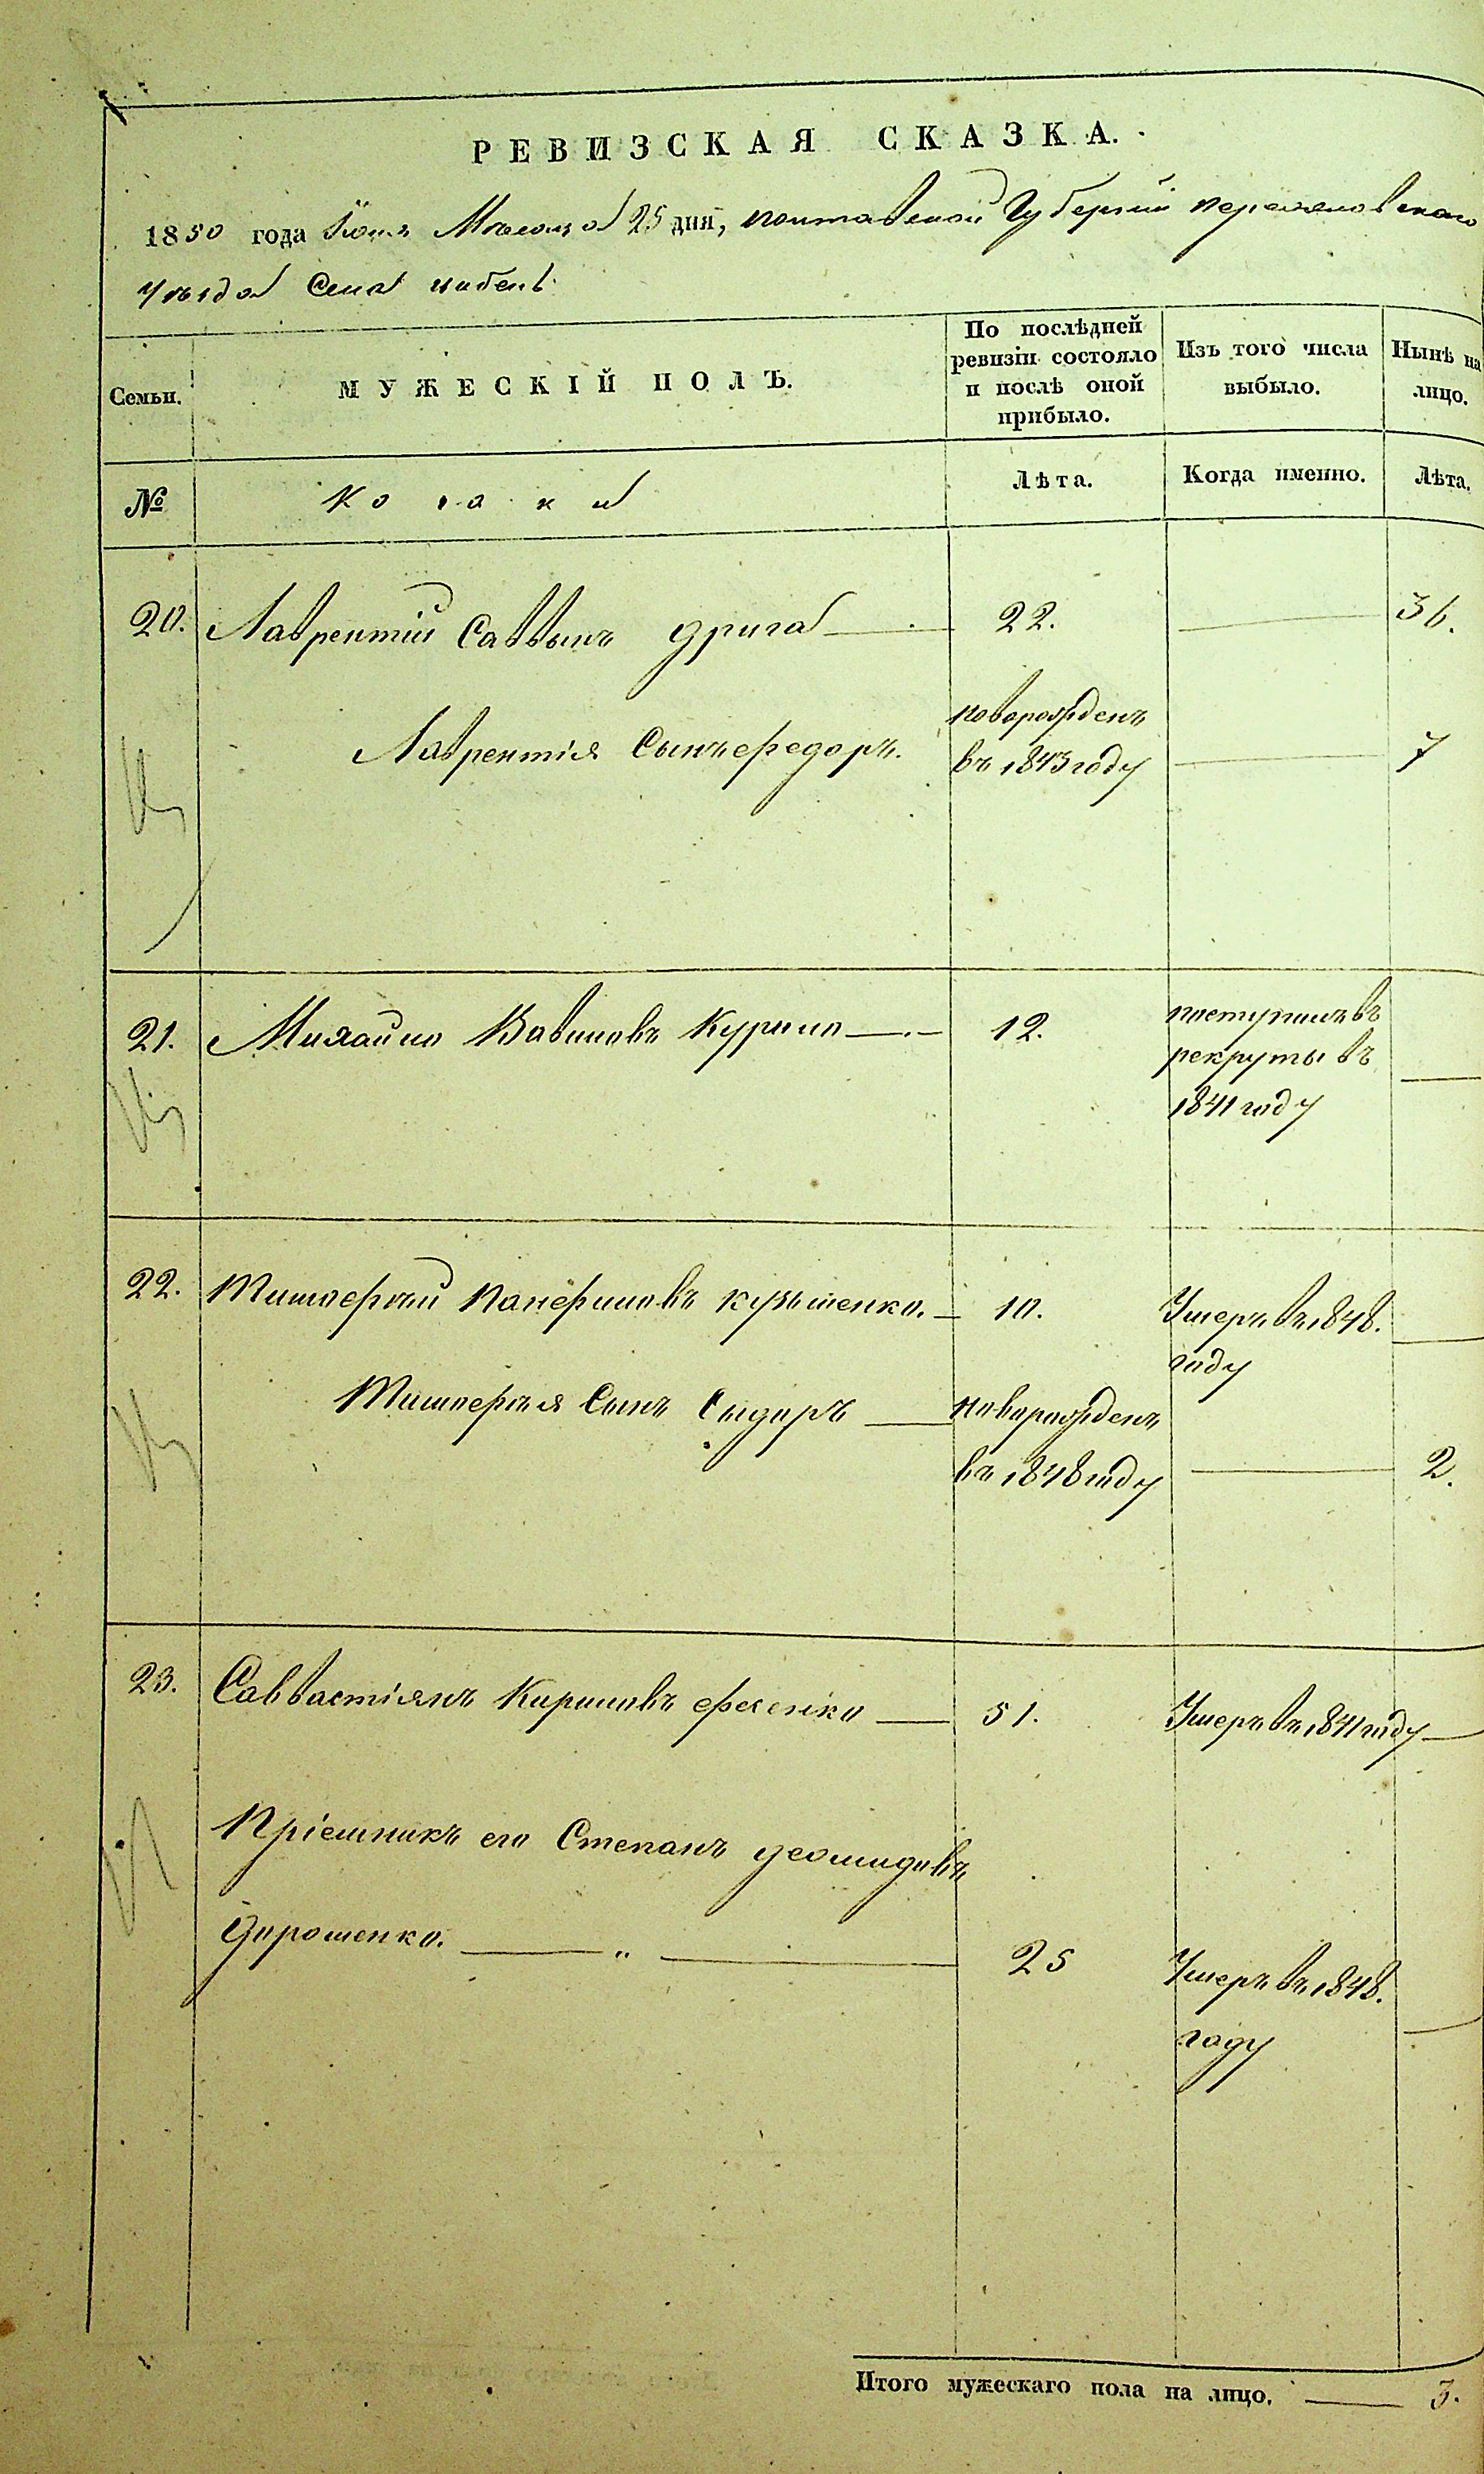 РЕВИЗСКАЯ СКАЗКА.
1850 года Юня Месяца 25 дня, полтавской Губернии переяславскаго
уезда Села
Семьи. МУЖЕСКІЙ ПОЛЪ. По послѣдней ревизіи состояло и послѣ оной прибыло. Изъ того числа выбыло. Нынѣ на лицо.
№ козаки Лѣта. Когда именно. Лѣта.
20. Лаврентій Саввинъ дрига 22. 36.
Лаврентія Сынъ федоръ. новорожденъ
въ 1843 году 7
21. Михайло Вавиловъ Курило 12. поступилъ въ
рекруты въ
1841 году
22. Тимофѣй Панфиловъ 10. Умеръ въ 1848.
году
Тимофѣя Сынъ Сидоръ новорожденъ
въ 1848 году 2.
23. Саввастіянъ Кириловъ фесенко 51. Умеръ въ 1841 году
Пріемникъ его Степанъ деомидовъ
Дорошенко. „ 25 Умеръ въ 1848.
году
Итого мужескаго пола на лицо. 3.